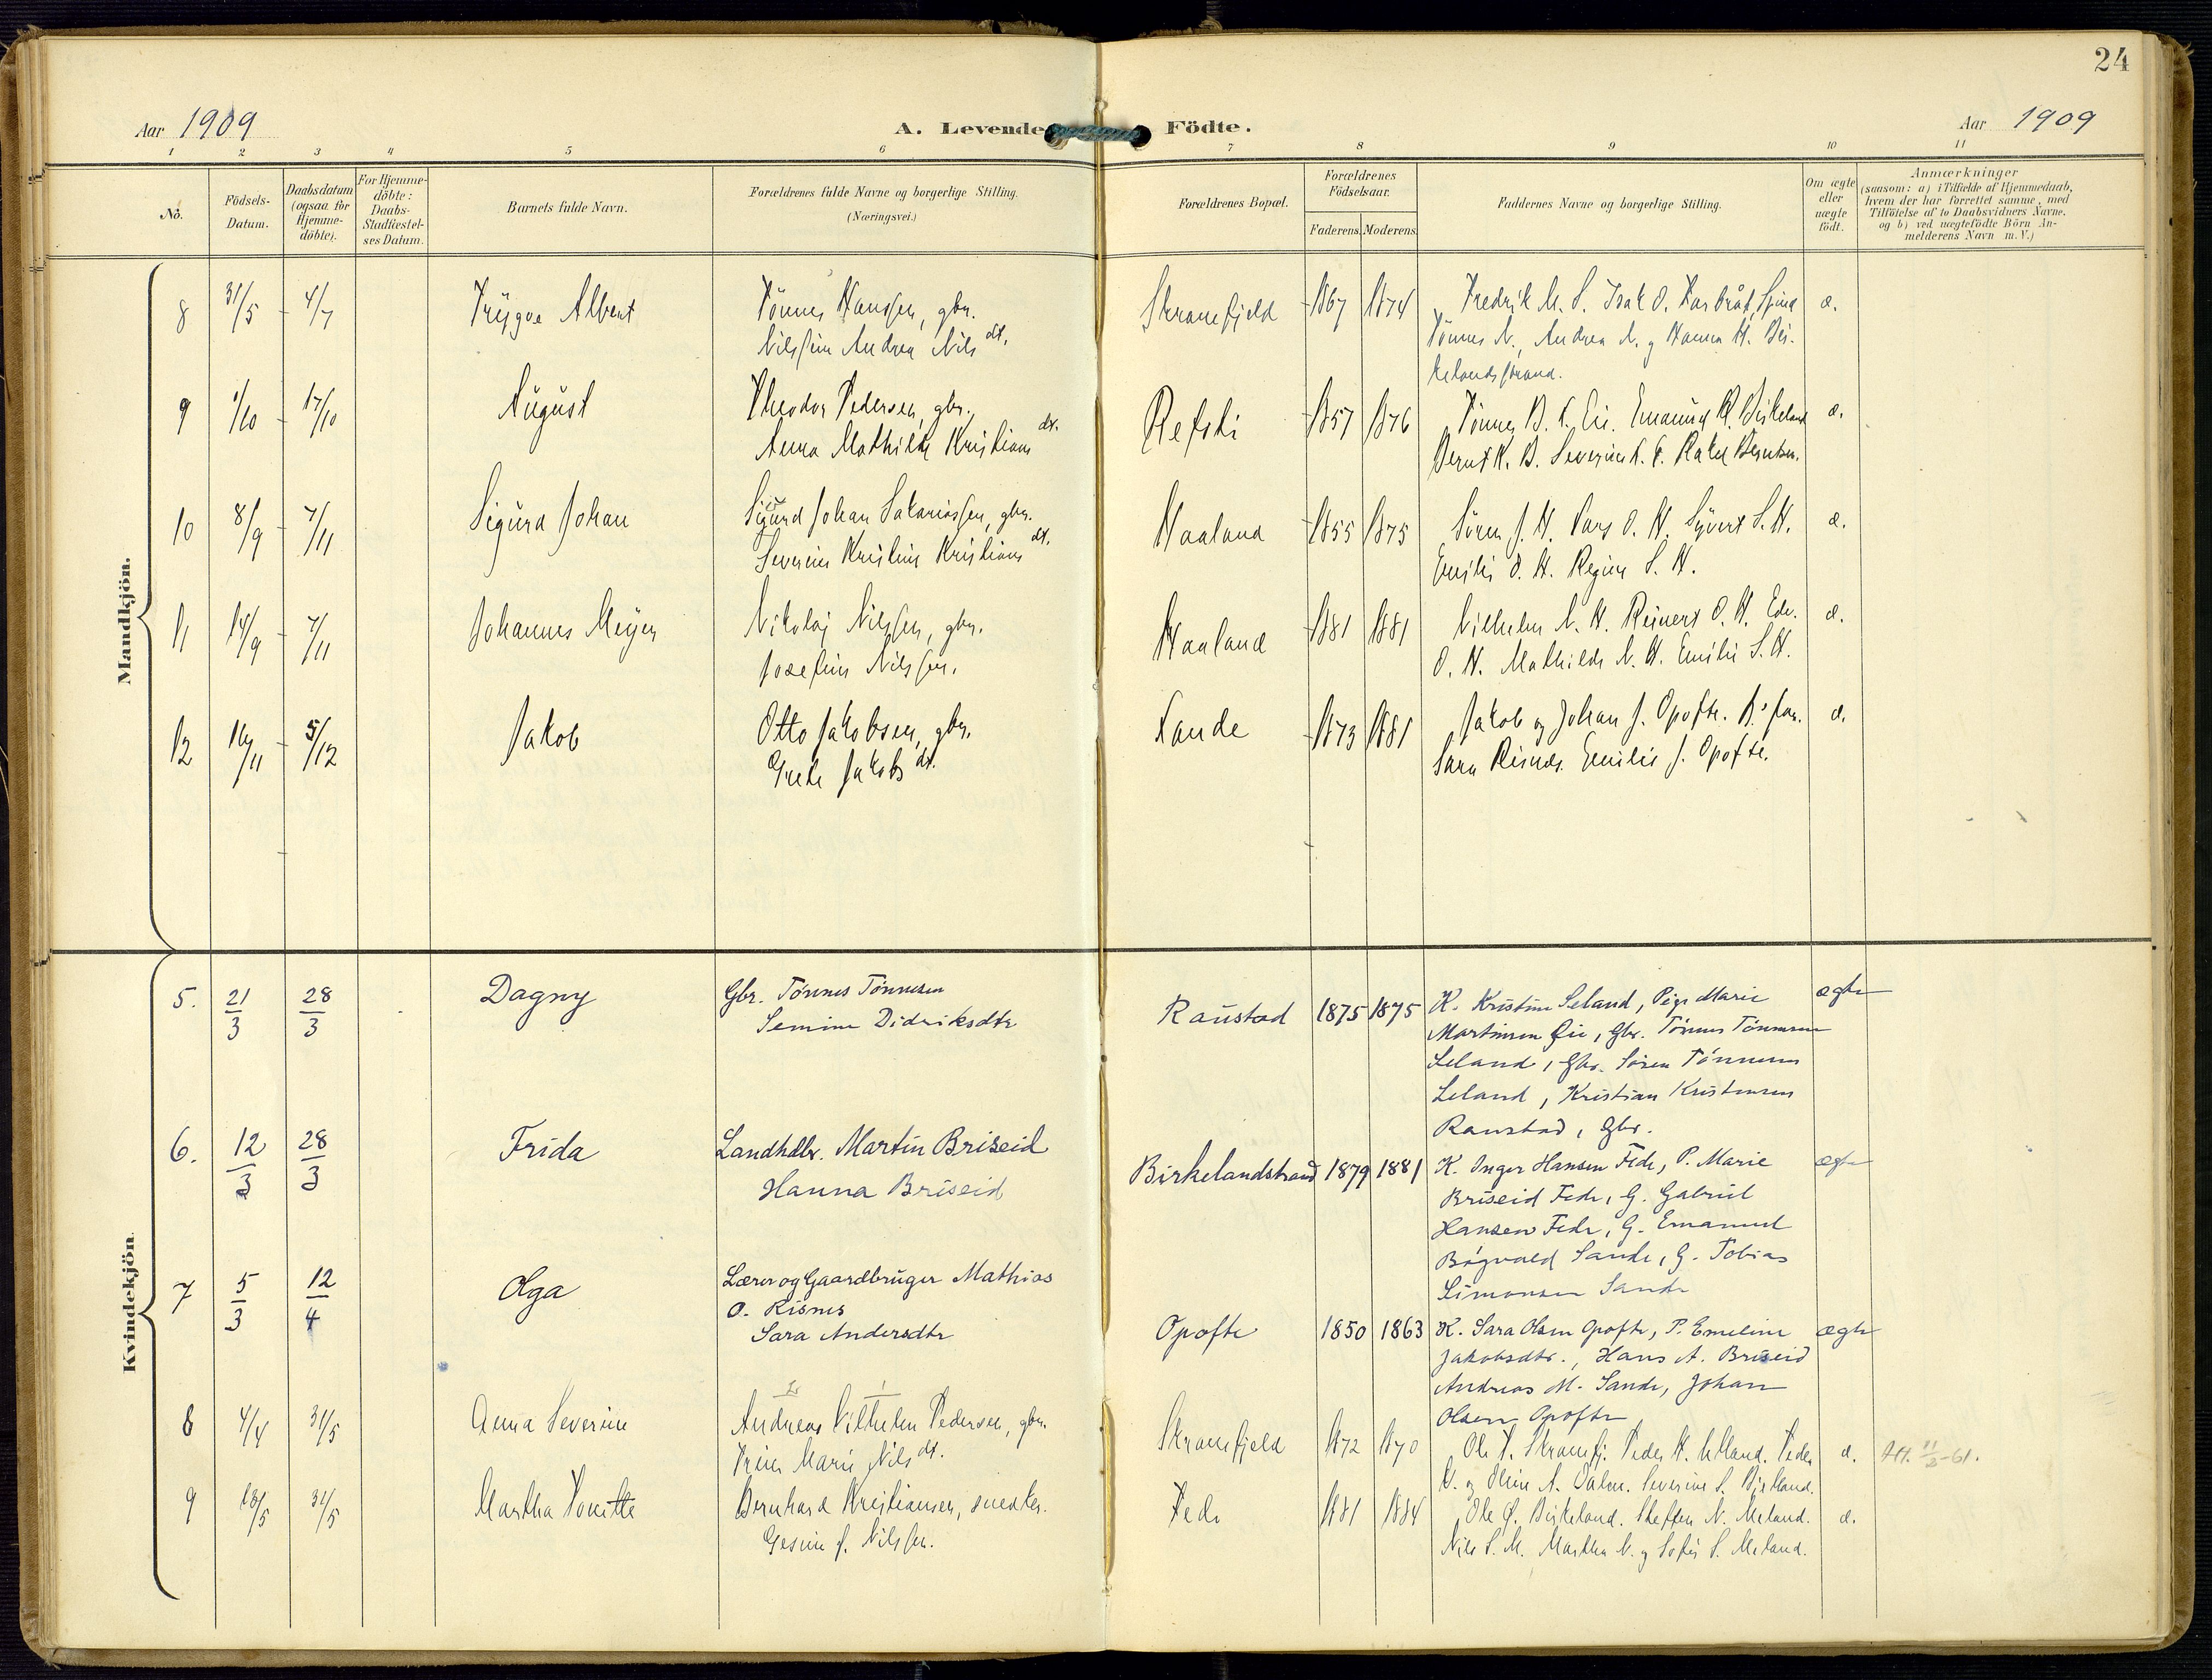 24
Aar 1909
A. Levende Födte.
Aar 1909
1 2 3 4 5 6 7 8 9 10 11
No.
Födsels-Datum.
Daabsdatum (ogsaa for Hjemme-döbte).
For Hjemme-döbte: Daabs-Stadfæstel-ses Datum.
Barnets fulde Navn.
Forældrenes fulde Navne og borgerlige Stilling.
(Næringsvei.)
Forældrenes Bopæl.
Forældrenes Födselsaar.
Faderens. Moderens.
Faddernes Navne og borgerlige Stilling.
Om ægte eller uægte födt.
Anmærkninger
(saasom: a) i Tilfælde af Hjemmedaab,
hvem der har forrettet samme, med
Tilföielse af to Daabsvidners Navne.
og b) ved uægtefödte Börn An-
melderens Navn m. V.)
Mandkjön.
8 31/5 4/7 Trygve Albert Tönnes Hanssen, gbr. Skranefjeld 1867 1874 Fredrik M. S. Isak O.
Nilsine Andrea Nils dt. Tönnes N., Andrea N. g Hanna H. Bir-
kelandsstrand.
9 1/10 17/10 August Theodor Pedersen, gbr. Refsti 1857 1876 Emanuel Birkeland æ.
Anna Mathilde Kristians dt. Bernt K. B. Rakel Berntsen.
10 8/9 7/11 Sigurd Johan Sigurd Johan Sakariassen, gbr. Haaland 1855 1875 Sören J. H. Lars O. H. Syvert S. H. æ.
Severine Kristine Kristians dt. Emilie O. H. Regine S. H.
11 14/9 7/11 Johannes Meyer Nikolai Nilssen, gbr. Haaland 1881 1881 Vilhelm N. H. Reinert O. H. Edv. æ.
Josefine Nilssen. O. H. Mathilde N. H. Emilie S. H.
12 16/11 5/12 Jakob Otto Jakobsen, gbr. Sande 1873 1881 Jakob og Johan J. Opofte. æ.
Grete Jakobs dt. Sara Risnes. Emilie J. Opofte.
Kvindekjön
5. 21/3 28/3 Dagny Gbr. Tönnes Tönnesen Raustad 1875 1875 K. Kristine Seland, Pige Marie ægte
Semine Didriksdtr Martinsen Øie, Gbr. Tönnes Tönnesen
Seland, Gbr. Sören Tönnesen
Seland, Kristian Kristensen
Raustad, Gbr.
6. 12/3 28/3 Frida Landhdlr. Martin Briseid Birkelandstrand 1879 1881 K. Inger Hansen Fede, P. Marie ægte
Hanna Briseid Briseid Fede, G. Gabriel
Hansen Fede, G. Emanuel
Bögvald Sande, G. Tobias
Simonsen Sande
7 5/3 12/4 Olga Lærer og Gaardbruger Mathias
O. Risnes
Sara Andersdtr Opofte 1850 1863 K. Sara Olsen Opofte, P. Emeline ægte
Jakobsdtr., Hans A. Briseid
Andreas M. Sande, Johan
Olsen Opofte
8 4/4 31/5 Anna Severine Andreas Vilhelm Pedersen, gbr. Skranefjeld 1872 1870 Ole T. Skranefj. Peder H. Peder æ. 61.
Marie Nils dt. H. og Oline A. Severine S. Birkeland.
9 13/5 31/5 Martha Tonette Bernhard Kristiansen, snedker. Fede 1881 1884 Ole Ø. Birkeland. Steffen N. Meland. æ.
Gesine J. Nilssen. Nils S. M. Martha N. g Sofie S. Meland.